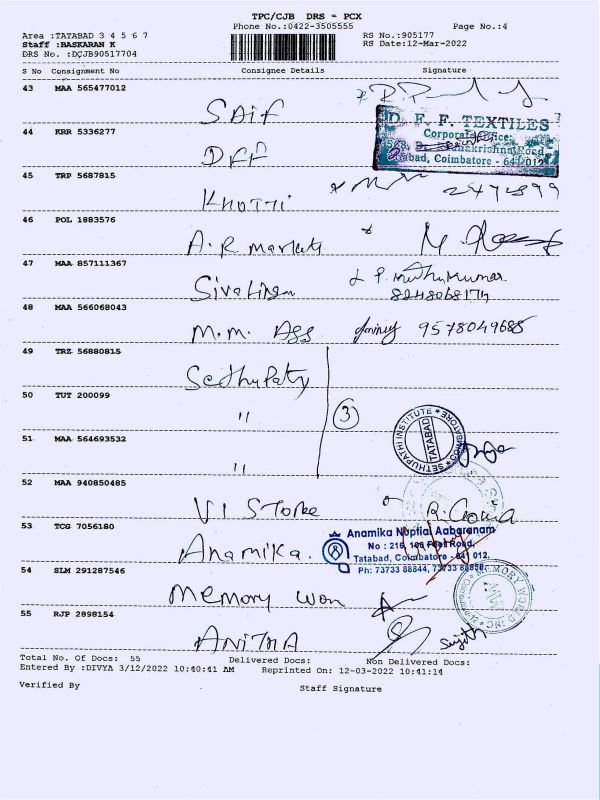 TPC/CJB DRS = PCX
Phone No.:0422-3505555
Page No.:4
Area :TATABAD 3 4 5 6 7
Staff :BASKARAN K
DRS No. :DCJB90517704
RS No.:905177
RS Date:12-Mar-2022
S No Consignment No Consignee Details Signature
43 MAA 565477012
SAIF
44 KRR 5336277
DFF
D. F. F. TEXTILES
Corporate Office:
Tatabad, Coimbatore - 641 012
45 TRP 5687815
46 POL 1883576
A.R. Markets
47 MAA 857111367
Sivalingam
P. Muthukumar
8248068174
48 MAA 566068043
M.M. Ass
9578049685
49 TRZ 56880815
Sethupaty
50 TUT 200099
"
3
51 MAA 564693532
"
SETHUPATHI INSTITUTE * COIMBATORE *
TATABAD
52 MAA 940850485
VI Store
53 TCG 7056180
Anamika.
Anamika Noptial Aabaranam
No : 216, 100 Feet Road,
Tatabad, Coimbatore - 641 012.
Ph: 73733 88844, 73733 88858
54 SLM 291287546
Memory won
MEMORY WORLD INC
55 RJP 2898154
ANITHA
Sujith
Total No. Of Docs: 55 Delivered Docs: Non Delivered Docs:
Entered By :DIVYA 3/12/2022 10:40:41 AM Reprinted On: 12-03-2022 10:41:14
Verified By Staff Signature